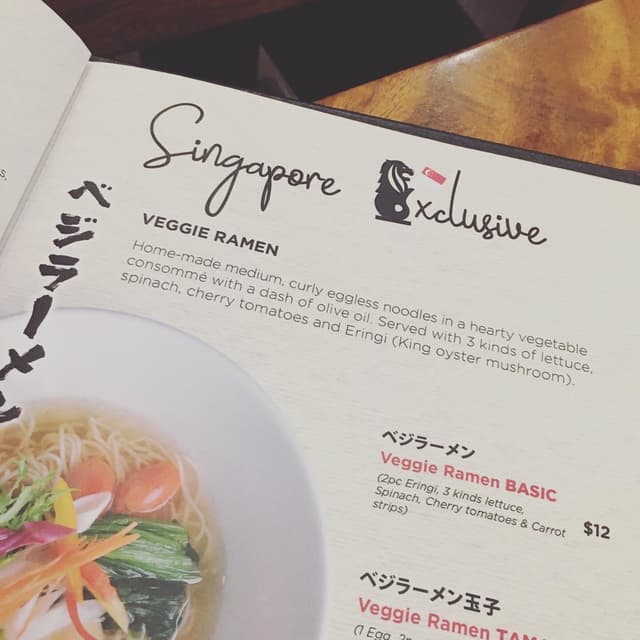 Singapore Exclusive
ベジラーメン
VEGGIE RAMEN
Home-made medium, curly eggless noodles in a hearty vegetable
consommé with a dash of olive oil. Served with 3 kinds of lettuce,
spinach, cherry tomatoes and Eringi (King oyster mushroom).
ベジラーメン
Veggie Ramen BASIC
(2pc Eringi, 3 kinds lettuce,
Spinach, Cherry tomatoes & Carrot
strips)
$12
ベジラーメン玉子
Veggie Ramen
(1 Egg,